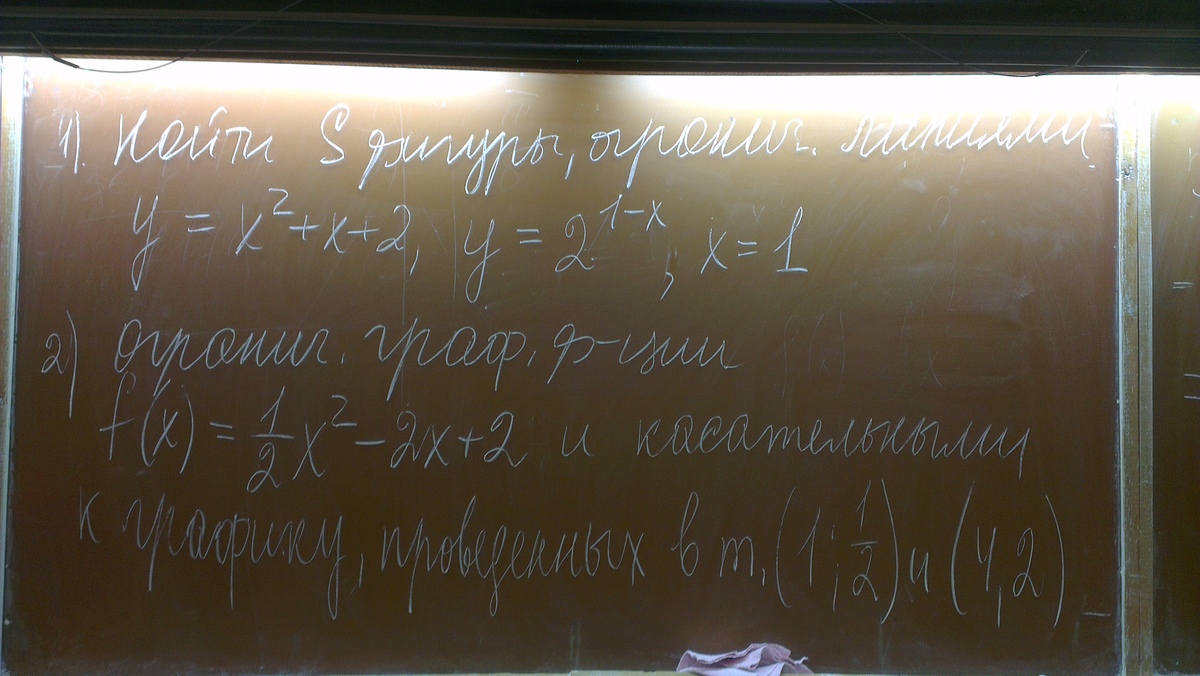 1). Найти S фигуры, огранич. линиями
y = x² + x + 2, y = 2^(1-x), x = 1
2) огранич. граф. ф-ции
f(x) = 1/2 x² - 2x + 2 и касательными
к графику, проведенных в т. (1; 1/2) и (4, 2)